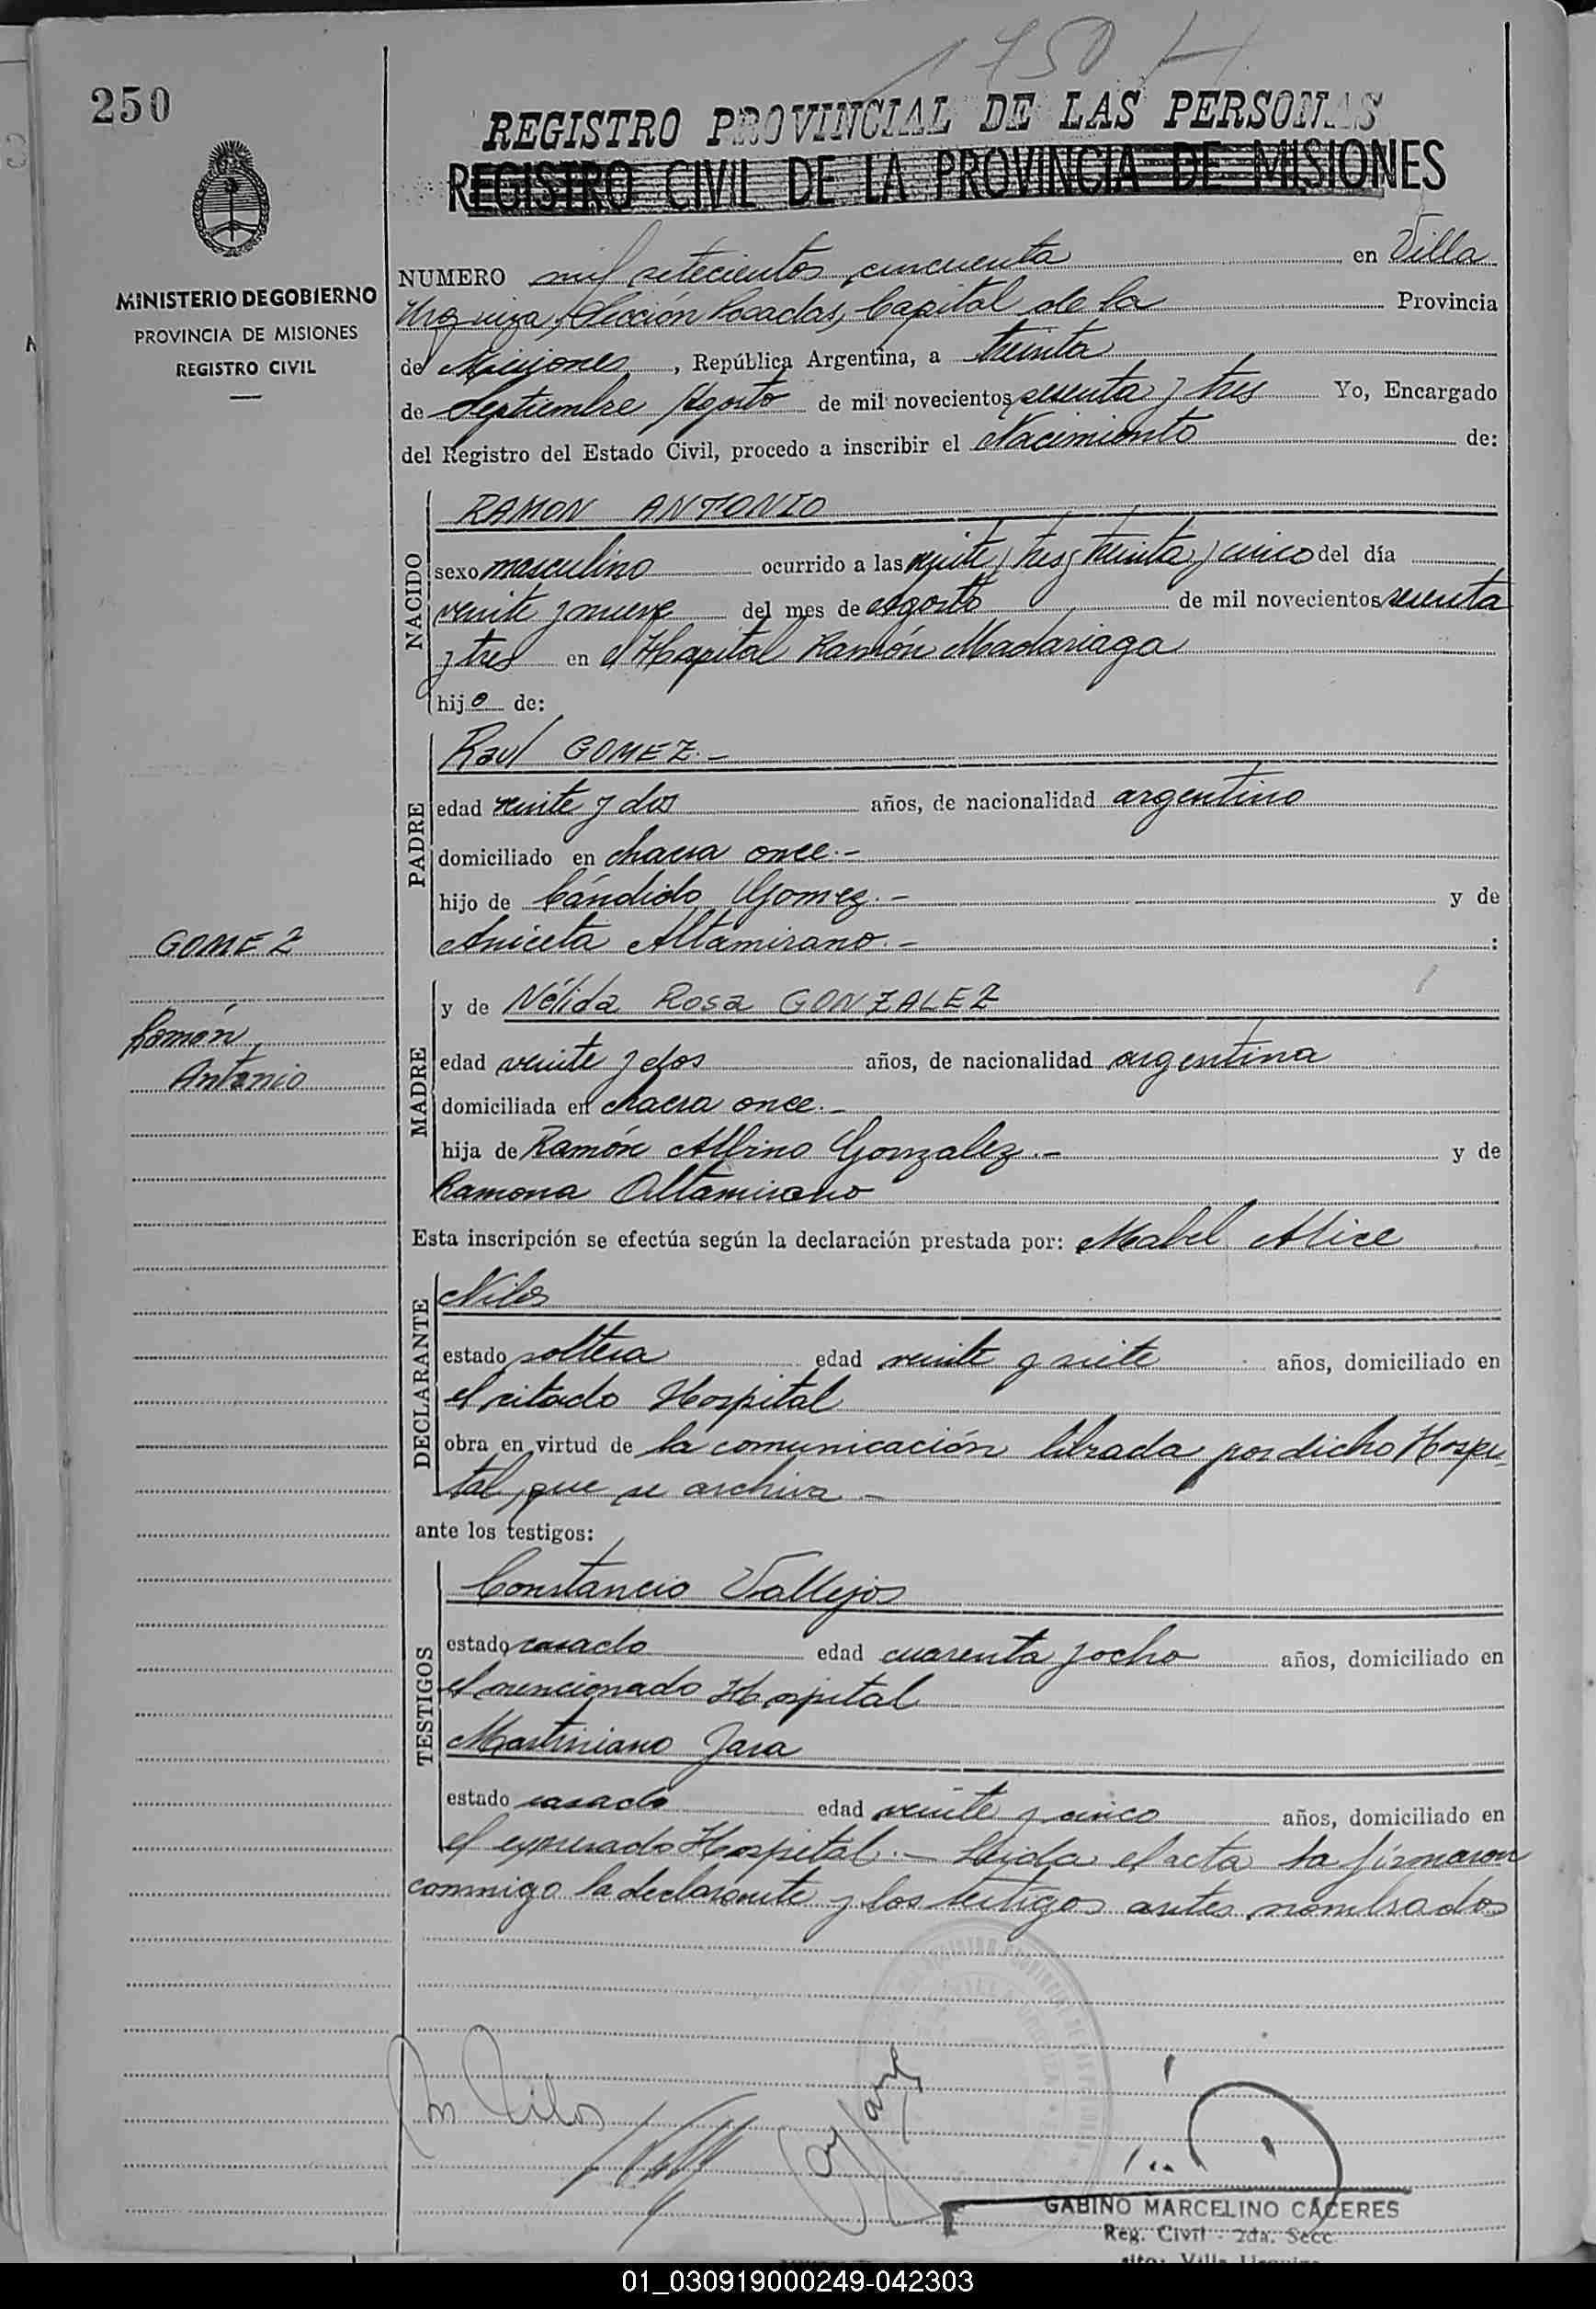 1750
250
REGISTRO PROVINCIAL DE LAS PERSONAS
REGISTRO CIVIL DE LA PROVINCIA DE MISIONES
MINISTERIO DE GOBIERNO
PROVINCIA DE MISIONES
REGISTRO CIVIL
NUMERO mil setecientos cincuenta en Villa
Urquiza, Sección Posadas, Capital de la Provincia
de Misiones, República Argentina, a treinta
de Septiembre /Agosto de mil novecientos sesenta y tres Yo, Encargado
del Registro del Estado Civil, procedo a inscribir el Nacimiento de:
NACIDO
RAMON ANTONIO
sexo masculino ocurrido a las veinte y tres y treinta y cinco del día
veinte y nueve del mes de Agosto de mil novecientos sesenta
y tres en el Hospital Ramón Madariaga
hijo de:
PADRE
Raul GOMEZ.-
edad veinte y dos años, de nacionalidad argentino
domiciliado en chacra once.-
hijo de Cándido Gomez.- y de
Aniceta Altamirano.- :
GOMEZ
Ramón
Antonio
MADRE
y de Nélida Rosa GONZALEZ
edad veinte y dos años, de nacionalidad argentina
domiciliada en chacra once.-
hija de Ramón Albino Gonzalez.- y de
Ramona Altamirano
Esta inscripción se efectúa según la declaración prestada por: Mabel Alice
DECLARANTE
Nilos
estado soltera edad veinte y siete años, domiciliado en
el citado Hospital
obra en virtud de la comunicación librada por dicho Hospi-
tal, que se archiva.-
ante los testigos:
TESTIGOS
Constancio Vallejos
estado casado edad cuarenta y ocho años, domiciliado en
el mencionado Hospital
Martiniano Jara
estado casado edad veinte y cinco años, domiciliado en
el expresado Hospital.- Leída el acta la firmaron
conmigo la declarante y los testigos antes nombrados
GABINO MARCELINO CACERES
Reg. Civil - 2da. Secc
01_030919000249-042303